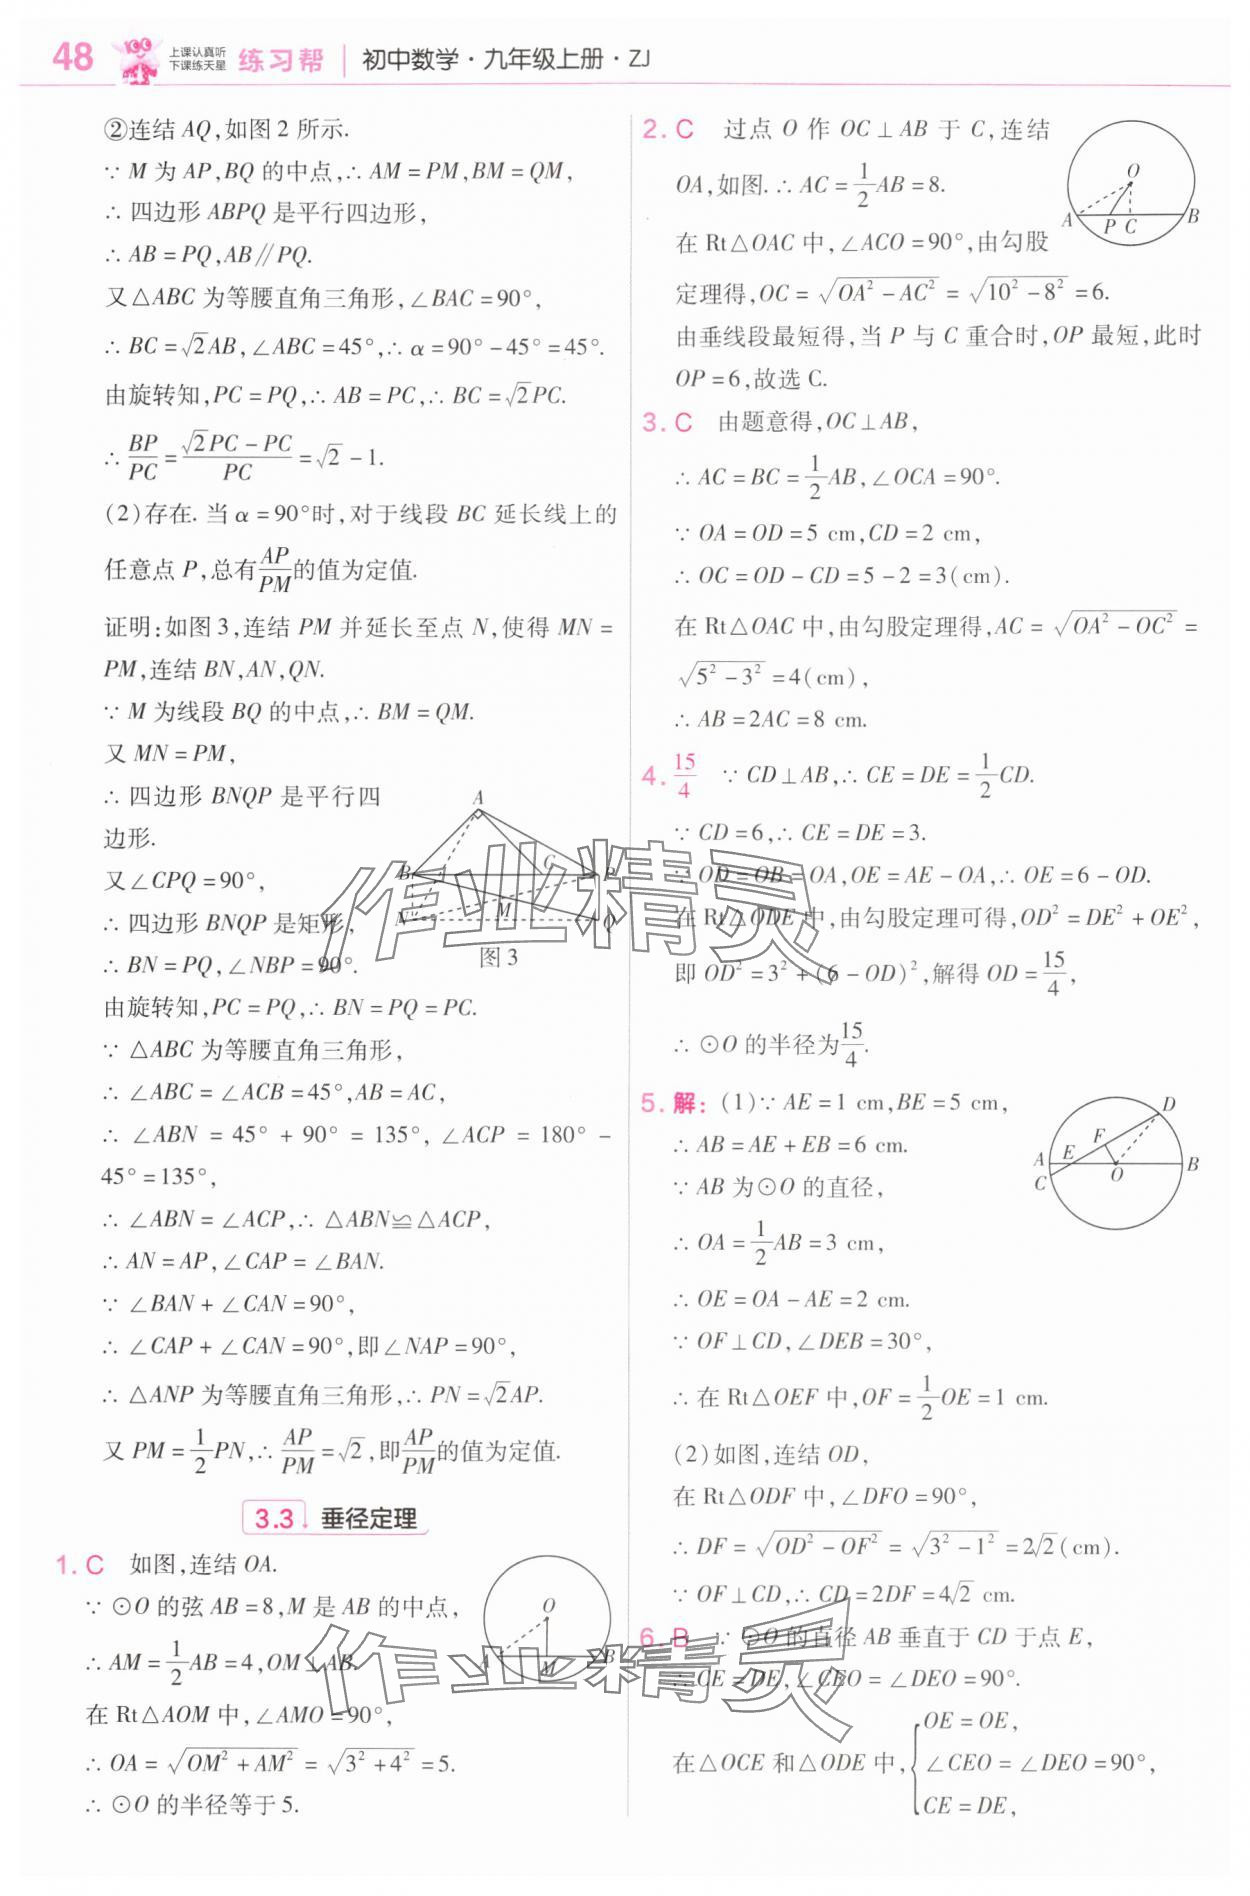 48 上课认真听 下课练天星 练习帮 初中数学·九年级上册·ZJ
②连结 AQ,如图 2 所示.
∵ M 为 AP,BQ 的中点,∴ AM=PM,BM=QM,
∴ 四边形 ABPQ 是平行四边形,
∴ AB=PQ,AB∥PQ.
又△ABC 为等腰直角三角形,∠BAC=90°,
∴ BC=√2AB,∠ABC=45°,∴ α=90°-45°=45°.
由旋转知,PC=PQ,∴ AB=PC,∴ BC=√2PC.
∴ BP/PC=(√2PC-PC)/PC=√2-1.
(2)存在. 当 α=90°时,对于线段 BC 延长线上的
任意点 P,总有AP/PM的值为定值.
证明:如图 3,连结 PM 并延长至点 N,使得 MN=
PM,连结 BN,AN,QN.
∵ M 为线段 BQ 的中点,∴ BM=QM.
又 MN=PM,
∴ 四边形 BNQP 是平行四
边形.
又∠CPQ=90°,
∴ 四边形 BNQP 是矩形,
∴ BN=PQ,∠NBP=90°.
A
B
C
P
N
M
Q
图 3
由旋转知,PC=PQ,∴ BN=PQ=PC.
∵ △ABC 为等腰直角三角形,
∴ ∠ABC=∠ACB=45°,AB=AC,
∴ ∠ABN = 45° + 90° = 135°, ∠ACP = 180° -
45°=135°,
∴ ∠ABN=∠ACP,∴ △ABN≌△ACP,
∴ AN=AP,∠CAP=∠BAN.
∵ ∠BAN+∠CAN=90°,
∴ ∠CAP+∠CAN=90°,即∠NAP=90°,
∴ △ANP 为等腰直角三角形,∴ PN=√2AP.
又 PM=1/2PN,∴ AP/PM=√2,即AP/PM的值为定值.
3.3 垂径定理
1. C 如图,连结 OA.
∵ ⊙O 的弦 AB=8,M 是 AB 的中点,
∴ AM=1/2AB=4,OM⊥AB.
在 Rt△AOM 中,∠AMO=90°,
∴ OA=√(OM²+AM²)=√(3²+4²)=5.
∴ ⊙O 的半径等于 5.
O
A
M
B
2. C 过点 O 作 OC⊥AB 于 C,连结
OA,如图. ∴ AC=1/2AB=8.
在 Rt△OAC 中,∠ACO=90°,由勾股
定理得,OC=√(OA²-AC²)=√(10²-8²)=6.
O
A
P
C
B
由垂线段最短得,当 P 与 C 重合时,OP 最短,此时
OP=6,故选 C.
3. C 由题意得,OC⊥AB,
∴ AC=BC=1/2AB,∠OCA=90°.
∵ OA=OD=5 cm,CD=2 cm,
∴ OC=OD-CD=5-2=3(cm).
在 Rt△OAC 中,由勾股定理得,AC=√(OA²-OC²)=
√(5²-3²)=4(cm),
∴ AB=2AC=8 cm.
4. 15/4 ∵ CD⊥AB,∴ CE=DE=1/2CD.
∵ CD=6,∴ CE=DE=3.
∵ OD=OB=OA,OE=AE-OA,∴ OE=6-OD.
在 Rt△ODE 中,由勾股定理可得,OD²=DE²+OE²,
即 OD²=3²+(6-OD)²,解得 OD=15/4,
∴ ⊙O 的半径为15/4.
5. 解:(1)∵ AE=1 cm,BE=5 cm,
∴ AB=AE+EB=6 cm.
∵ AB 为⊙O 的直径,
∴ OA=1/2AB=3 cm,
∴ OE=OA-AE=2 cm.
D
F
A
E
O
B
C
∵ OF⊥CD,∠DEB=30°,
∴ 在 Rt△OEF 中,OF=1/2OE=1 cm.
(2)如图,连结 OD,
在 Rt△ODF 中,∠DFO=90°,
∴ DF=√(OD²-OF²)=√(3²-1²)=2√2(cm).
∵ OF⊥CD,∴ CD=2DF=4√2 cm.
6. B ∵ ⊙O 的直径 AB 垂直于 CD 于点 E,
∴ CE=DE,∠CEO=∠DEO=90°.
在△OCE 和△ODE 中,
OE=OE,
∠CEO=∠DEO=90°,
CE=DE,
作业精灵
作业精灵